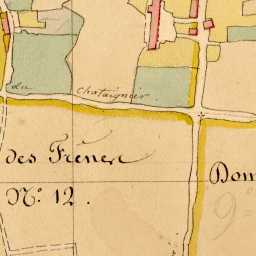 du Chataignier
des Frêner
Dom
N.º 12.
9